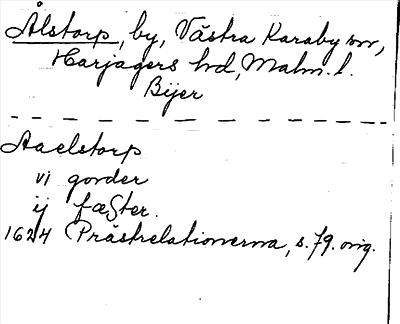 Ålstorp, by, Västra Karaby sn,
Harjagers hd, Malm. l.
Bijer
Aaelstorp
vi gorder
ij fæster.
1624 Prästrelationerna, s. 79. orig.